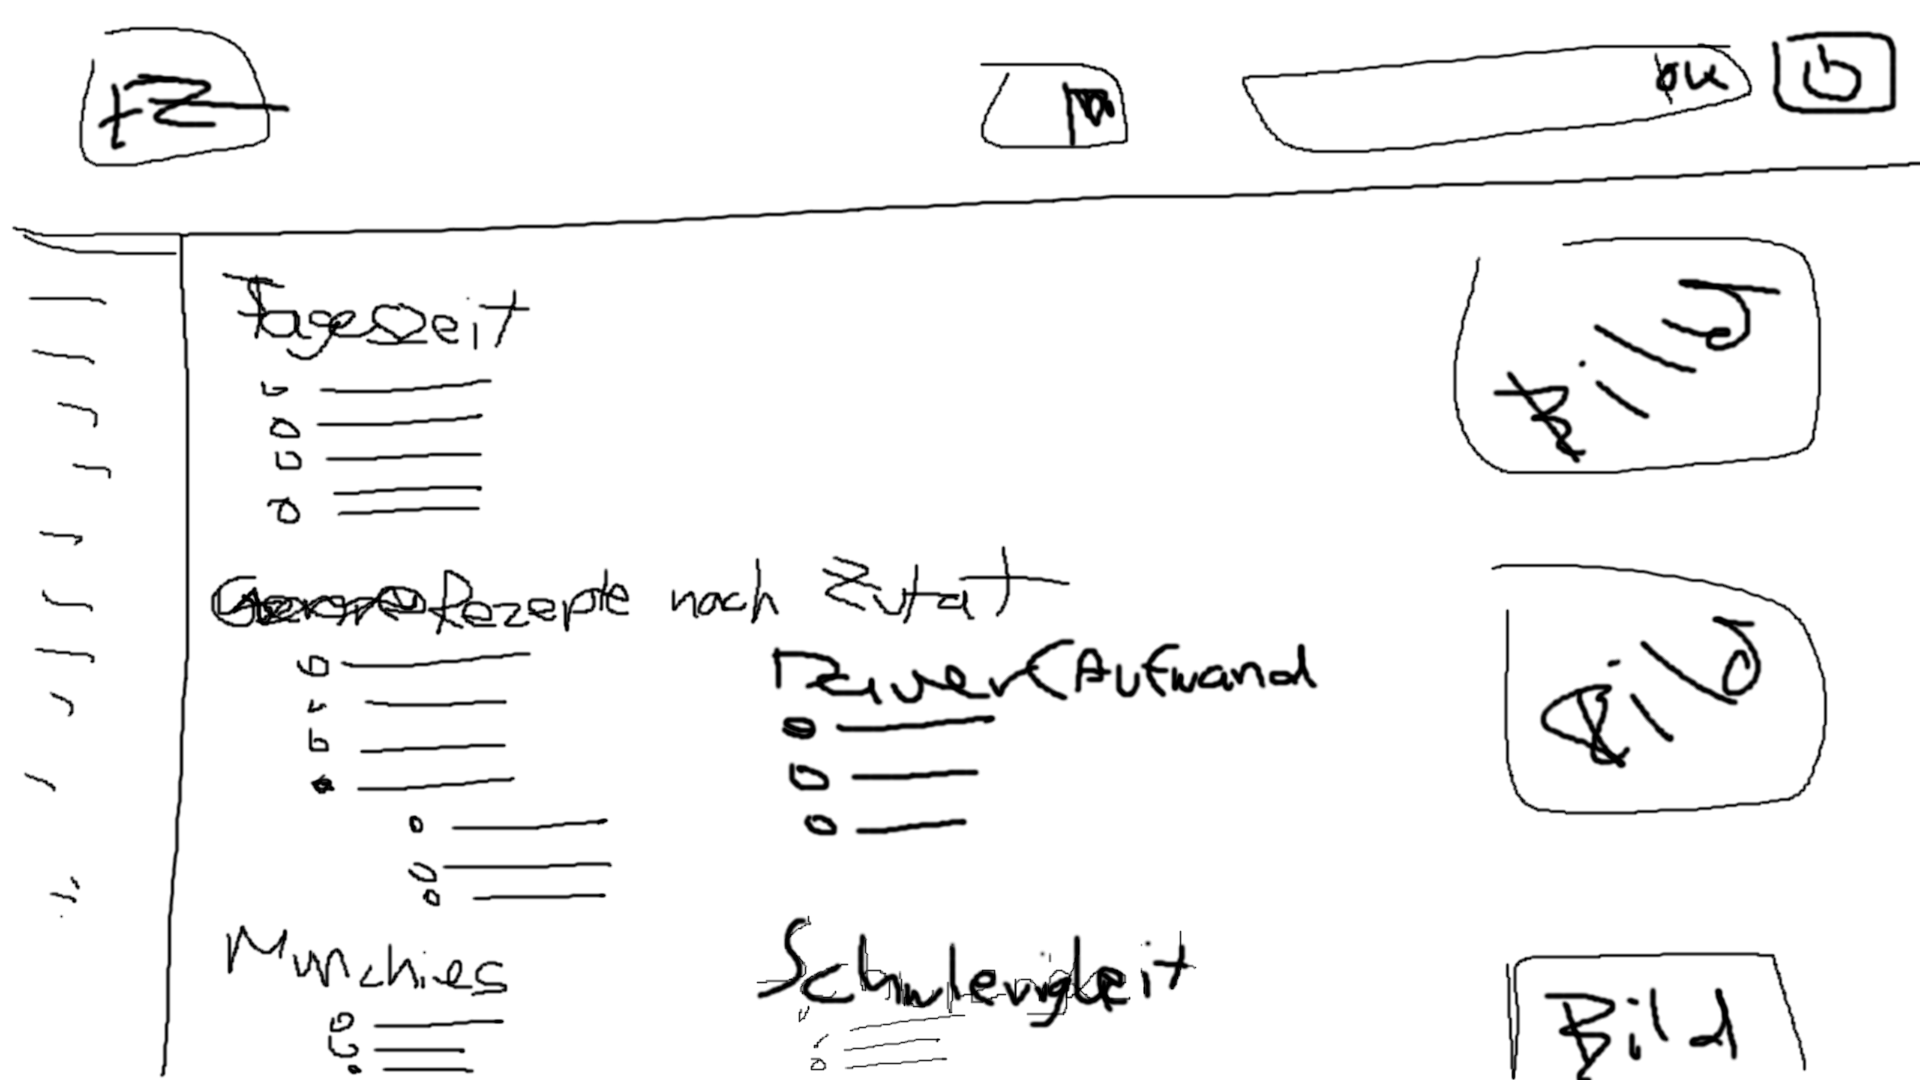 Tageszeit
Rezepte nach Zutat
Dauer(Aufwand
Munchies
Schwierigkeit
Bild
Bild
Bild